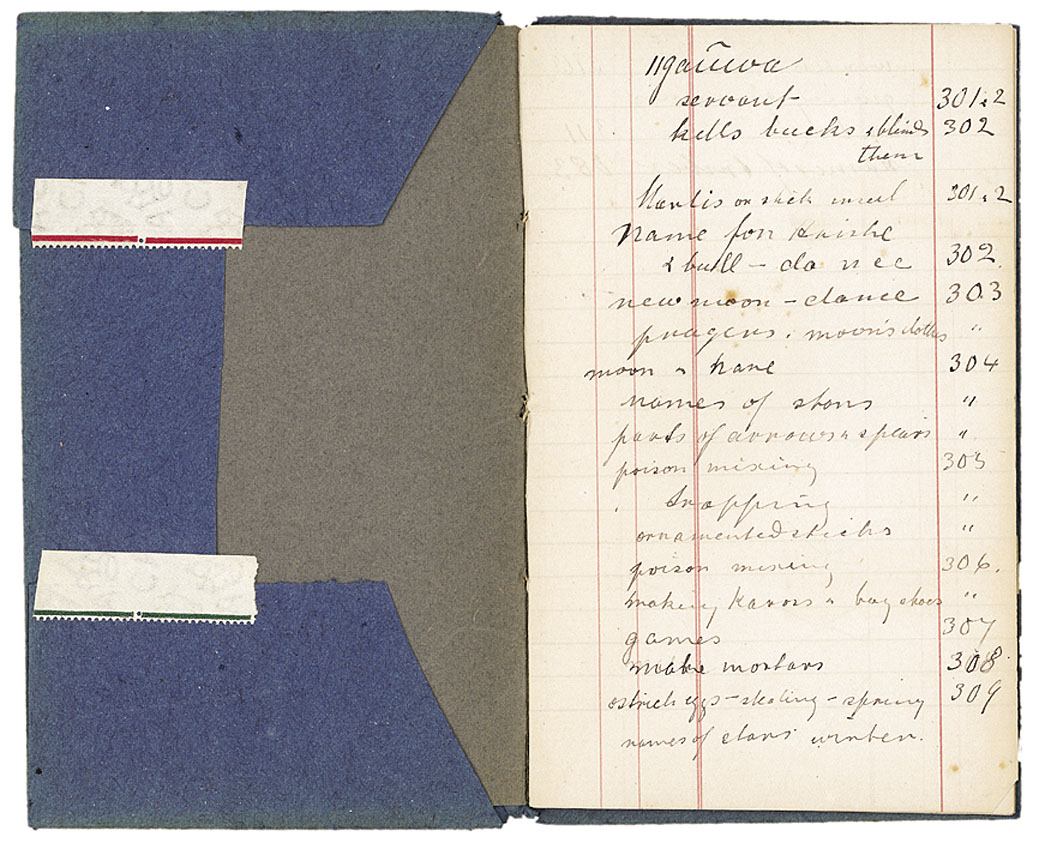 ||gaũwa
servant 301.2
kills bucks & blinds 302
them
Mantis or stick insect 301.2
Name for Krishe
& bull - dance 302.
new moon - dance 303
prayers. moon's clothes "
moon & hare 304
names of stars "
parts of arrows & spears "
poison mixing 305
trapping "
ornamented sticks "
poison mixing 306.
making Karos & bag shoes "
games 307
make mortars 308
ostrich eggs - skating - spring 309
names of stars winter.